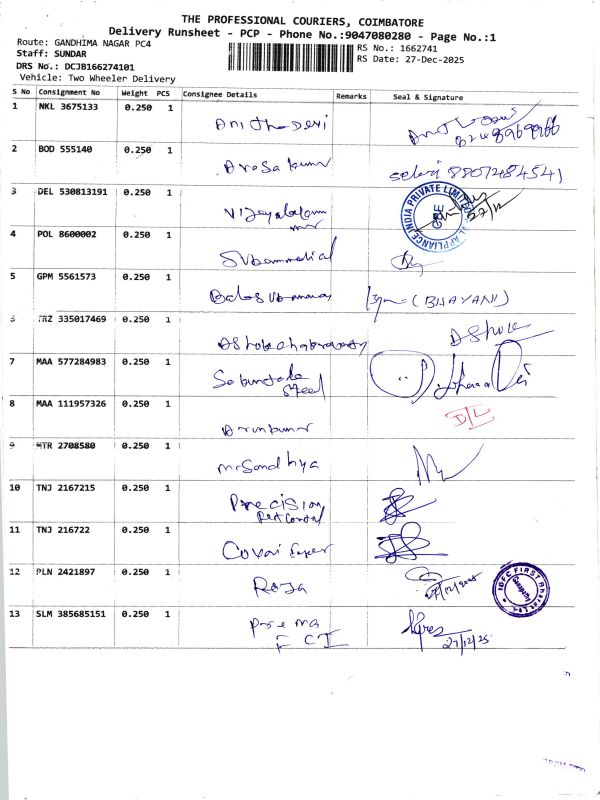 THE PROFESSIONAL COURIERS, COIMBATORE
Delivery Runsheet - PCP - Phone No.:9047080280 - Page No.:1
Route: GANDHIMA NAGAR PC4
Staff: SUNDAR
DRS No.: DCJB166274101
Vehicle: Two Wheeler Delivery
RS No.: 1662741
RS Date: 27-Dec-2025
S No Consignment No Weight PCS Consignee Details Remarks Seal & Signature
1 NKL 3675133 0.250 1 Anitha Devi
2 BOD 555140 0.250 1 Arasakumar selvi 8807484541
3 DEL 530813191 0.250 1 Vijayalakshmi 27/12
4 POL 8600002 0.250 1
5 GPM 5561573 0.250 1 (BHAYANI)
6 TRZ 335017469 0.250 1 Ashok chakravarthy Ashok
7 MAA 577284983 0.250 1 Steel
8 MAA 111957326 0.250 1 Arunkumar D/L
9 MTR 2708580 0.250 1 Mr Sandhya
10 TNJ 2167215 0.250 1 Precision
11 TNJ 216722 0.250 1 Covai
12 PLN 2421897 0.250 1 Roja 27/12/2025 IDFC FIRST Bharat Ltd.
13 SLM 385685151 0.250 1 Prema
FCI 27/12/25